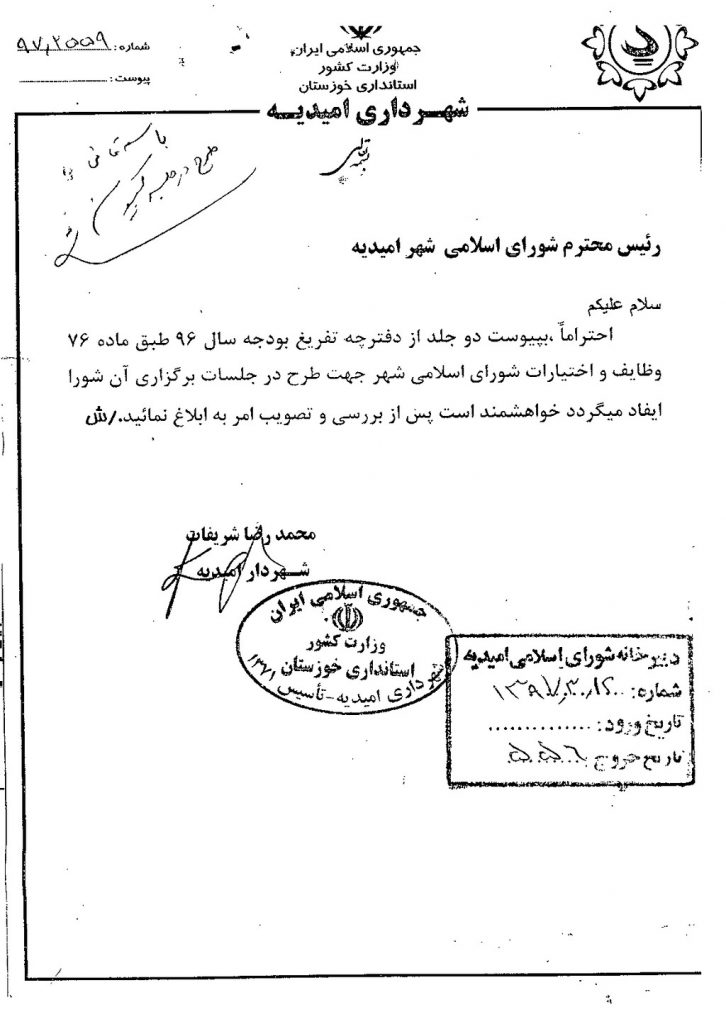 جمهوری اسلامی ایران
وزارت کشور
استانداری خوزستان
شهرداری امیدیه
شماره:
پیوست:
بسمه تعالی
رئیس محترم شورای اسلامی شهر امیدیه
سلام علیکم
احتراماً ،بپیوست دو جلد از دفترچه تفریغ بودجه سال ۹۶ طبق ماده ۷۶
وظایف و اختیارات شورای اسلامی شهر جهت طرح در جلسات برگزاری آن شورا
ایفاد میگردد خواهشمند است پس از بررسی و تصویب امر به ابلاغ نمائید./ش
محمد رضا شریفات
شهردار امیدیه
جمهوری اسلامی ایران
وزارت کشور
استانداری خوزستان
شهرداری امیدیه-تأسیس ۱۳۶۱
دبیرخانه شورای اسلامی امیدیه
شماره:
تاریخ ورود: ..............
تاریخ خروج